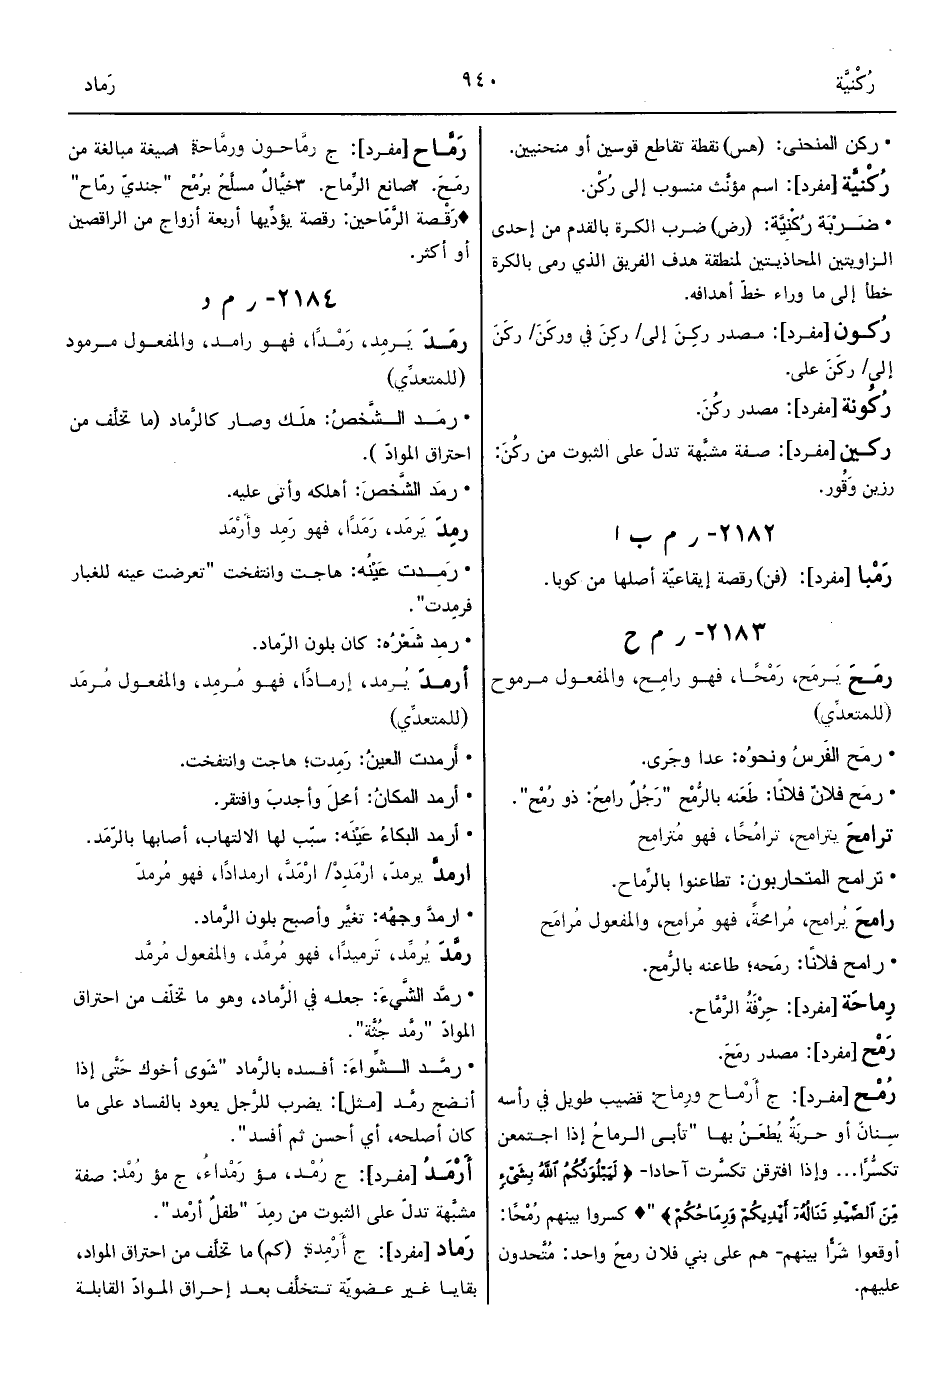 رُكْنيَّة
٩٤٠
رَماد
• ركن المنحنى: (هس) نقطة تقاطع قوسين أو منحنيين.
رُكْنيَّة [مفرد]: اسم مؤنَّث منسوب إلى رُكْن.
• ضَرْبَة رُكْنِيَّة: (رض) ضرب الكرة بالقدم من إحدى
الزاويتين المحاذيتين لمنطقة هدف الفريق الذي رمى بالكرة
خطأ إلى ما وراء خطّ أهدافه.
رُكون [مفرد]: مصدر ركِنَ إلى/ ركِنَ في وركَنَ/ ركَنَ
إلى/ ركَنَ على.
رُكُونة [مفرد]: مصدر ركُنَ.
ركين [مفرد]: صفة مشبَّهة تدلّ على الثبوت من ركُنَ:
رزين وَقُور.
٢١٨٢- ر م ب ا
رَمْبا [مفرد]: (فن) رقصة إيقاعيّة أصلها من كوبا.
٢١٨٣- ر م ح
رمَحَ يَرمَح، رَمْحًا، فهو رامِح، والمفعول مرموح
(للمتعدِّي)
• رمَح الفَرسُ ونحوُه: عدا وجَرى.
• رمَح فلانٌ فلانًا: طَعَنه بالرُّمْح "رَجُلٌ رامِحٌ: ذو رُمْح".
ترامحَ يترامح، ترامُحًا، فهو مُترامِح
• ترامح المتحاربون: تطاعنوا بالرِّماح.
رامحَ يُرامح، مُرامحةً، فهو مُرامِح، والمفعول مُرامَح
• رامح فلانًا: رمَحه؛ طاعنه بالرُّمح.
رِماحَة [مفرد]: حِرْفَةُ الرَّمَّاح.
رَمْح [مفرد]: مصدر رمَحَ.
رُمْح [مفرد]: ج أَرْماح ورِماح: قضيب طويل في رأسه
سِنانٌ أو حربةٌ يُطعَنُ بها "تأبى الرماحُ إذا اجتمعن
تكسُّرًا... وإذا افترقن تكسَّرت آحادا- ﴿لَيَبْلُوَنَّكُمُ ٱللَّهُ بِشَىْءٍ
مِّنَ ٱلصَّيْدِ تَنَالُهُۥٓ أَيْدِيكُمْ وَرِمَاحُكُمْ﴾" ♦ كسروا بينهم رُمْحًا:
أوقعوا شَرًّا بينهم- هم على بني فلان رمحٌ واحد: مُتَّحدون
عليهم.
رَمَّاح [مفرد]: ج رمَّاحون ورمَّاحة: ١صيغة مبالغة من
رمَحَ. ٢صانع الرِّماح. ٣خيَّالٌ مسلّحٌ برُمْح "جنديّ رمَّاح"
♦رَقْصة الرَّمَّاحين: رقصة يؤدِّيها أربعة أزواج من الراقصين
أو أكثر.
٢١٨٤- ر م د
رمَدَ يَرمِد، رَمْدًا، فهو رامد، والمفعول مرمود
(للمتعدِّي)
• رمَد الشَّخصُ: هلَك وصار كالرَّماد (ما تخلَّف من
احتراق الموادّ ).
• رمَد الشَّخصَ: أهلكه وأتى عليه.
رمِدَ يَرمَد، رَمَدًا، فهو رَمِد وأَرْمَد
• رَمِدت عَيْنُه: هاجت وانتفخت "تعرضت عينه للغبار
فرمِدت".
• رمِد شَعْرُه: كان بلون الرَّماد.
أرمدَ يُرمد، إرمادًا، فهو مُرمِد، والمفعول مُرمَد
(للمتعدِّي)
• أرمدت العينُ: رَمِدت؛ هاجت وانتفخت.
• أرمد المكانُ: أمحلَ وأجدبَ وافتقر.
• أرمد البكاءُ عَيْنَه: سبَّب لها الالتهاب، أصابها بالرَّمَد.
ارمدَّ يرمدّ، ارْمَدِدْ/ ارْمَدَّ، ارمدادًا، فهو مُرمدّ
• ارمدَّ وجهُه: تغيَّر وأصبح بلون الرَّماد.
رمَّدَ يُرمِّد، تَرميدًا، فهو مُرمِّد، والمفعول مُرمَّد
• رمَّد الشَّيءَ: جعله في الرَّماد، وهو ما تخلَّف من احتراق
الموادّ "رمَّد جُثَّة".
• رمَّد الشِّواءَ: أفسده بالرَّماد "شَوى أخوك حَتَّى إذا
أنضج رمَّد [مثل]: يضرب للرَّجل يعود بالفساد على ما
كان أصلحه، أي أحسن ثم أفسد".
أَرْمَدُ [مفرد]: ج رُمْد، مؤ رَمْداءُ، ج مؤ رُمْد: صفة
مشبَّهة تدل على الثبوت من رمِدَ "طفلٌ أرْمد".
رَماد [مفرد]: ج أَرْمِدة: (كم) ما تخلَّف من احتراق المواد،
بقايا غير عضويّة تتخلَّف بعد إحراق الموادّ القابلة